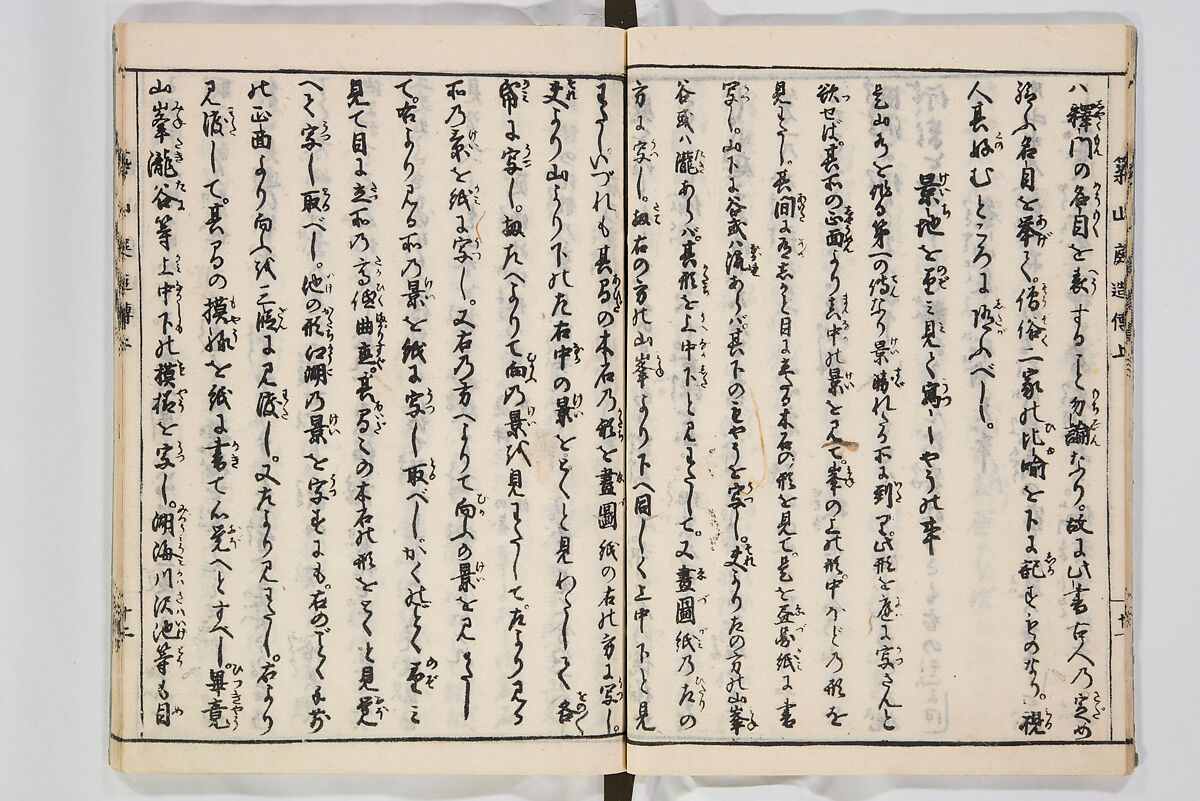 築山庭造傳上 十一
八釋門の名目を表することは勿論なり。故に此書古人の定め
給ふ名目を挙て。僧俗二家の比喩を下に記すものなり。視
人其好むところに随ふべし。
景地を望み見て寫しやうの事
是山水を作る第一の傳なり景勝れたる所に到り。此形を庭に写さんと
欲せば。其所の正面より真中の景を見て。峯の上の形。中ほどの形を
見わたし。其間に有あらゆる目に立たる木石の形を見て。是を画図紙に書
写し。山下に谷或ハ流あらバ其下のもやうを写し。夫より左の方の山峯
谷或ハ瀧あらバ。其形を上中下と見わたして。又畫圖紙乃左の
方に写し。扨右の方の山峯より下へ同しく上中下と見
わたしいづれも其間の木石乃形を畫圖紙の右の方に写し。
夫より山より下の左右中の景をとくと見わたして各
帋に写し。扨左へよりて向の景を見わたして左より見る
所乃景を紙に写し。又右乃方へよりて向ふの景を見わたし
て。右より見る所乃景を紙に写し取べしかくのごとく望み
見て目に立所乃高低曲直。其間々の木石の形をとくと見覚
へて写し取べし。池の形江湖乃景を写すにも。右のごとく手前
の正面より向へを三段に見渡し。又左より見わたし。右より
見渡して。其間の摸様を紙に書て心覚へとすべし。畢竟
山峯瀧谷等上中下の摸様を写し。湖海川沢池等も目
築山庭造傳上 十二